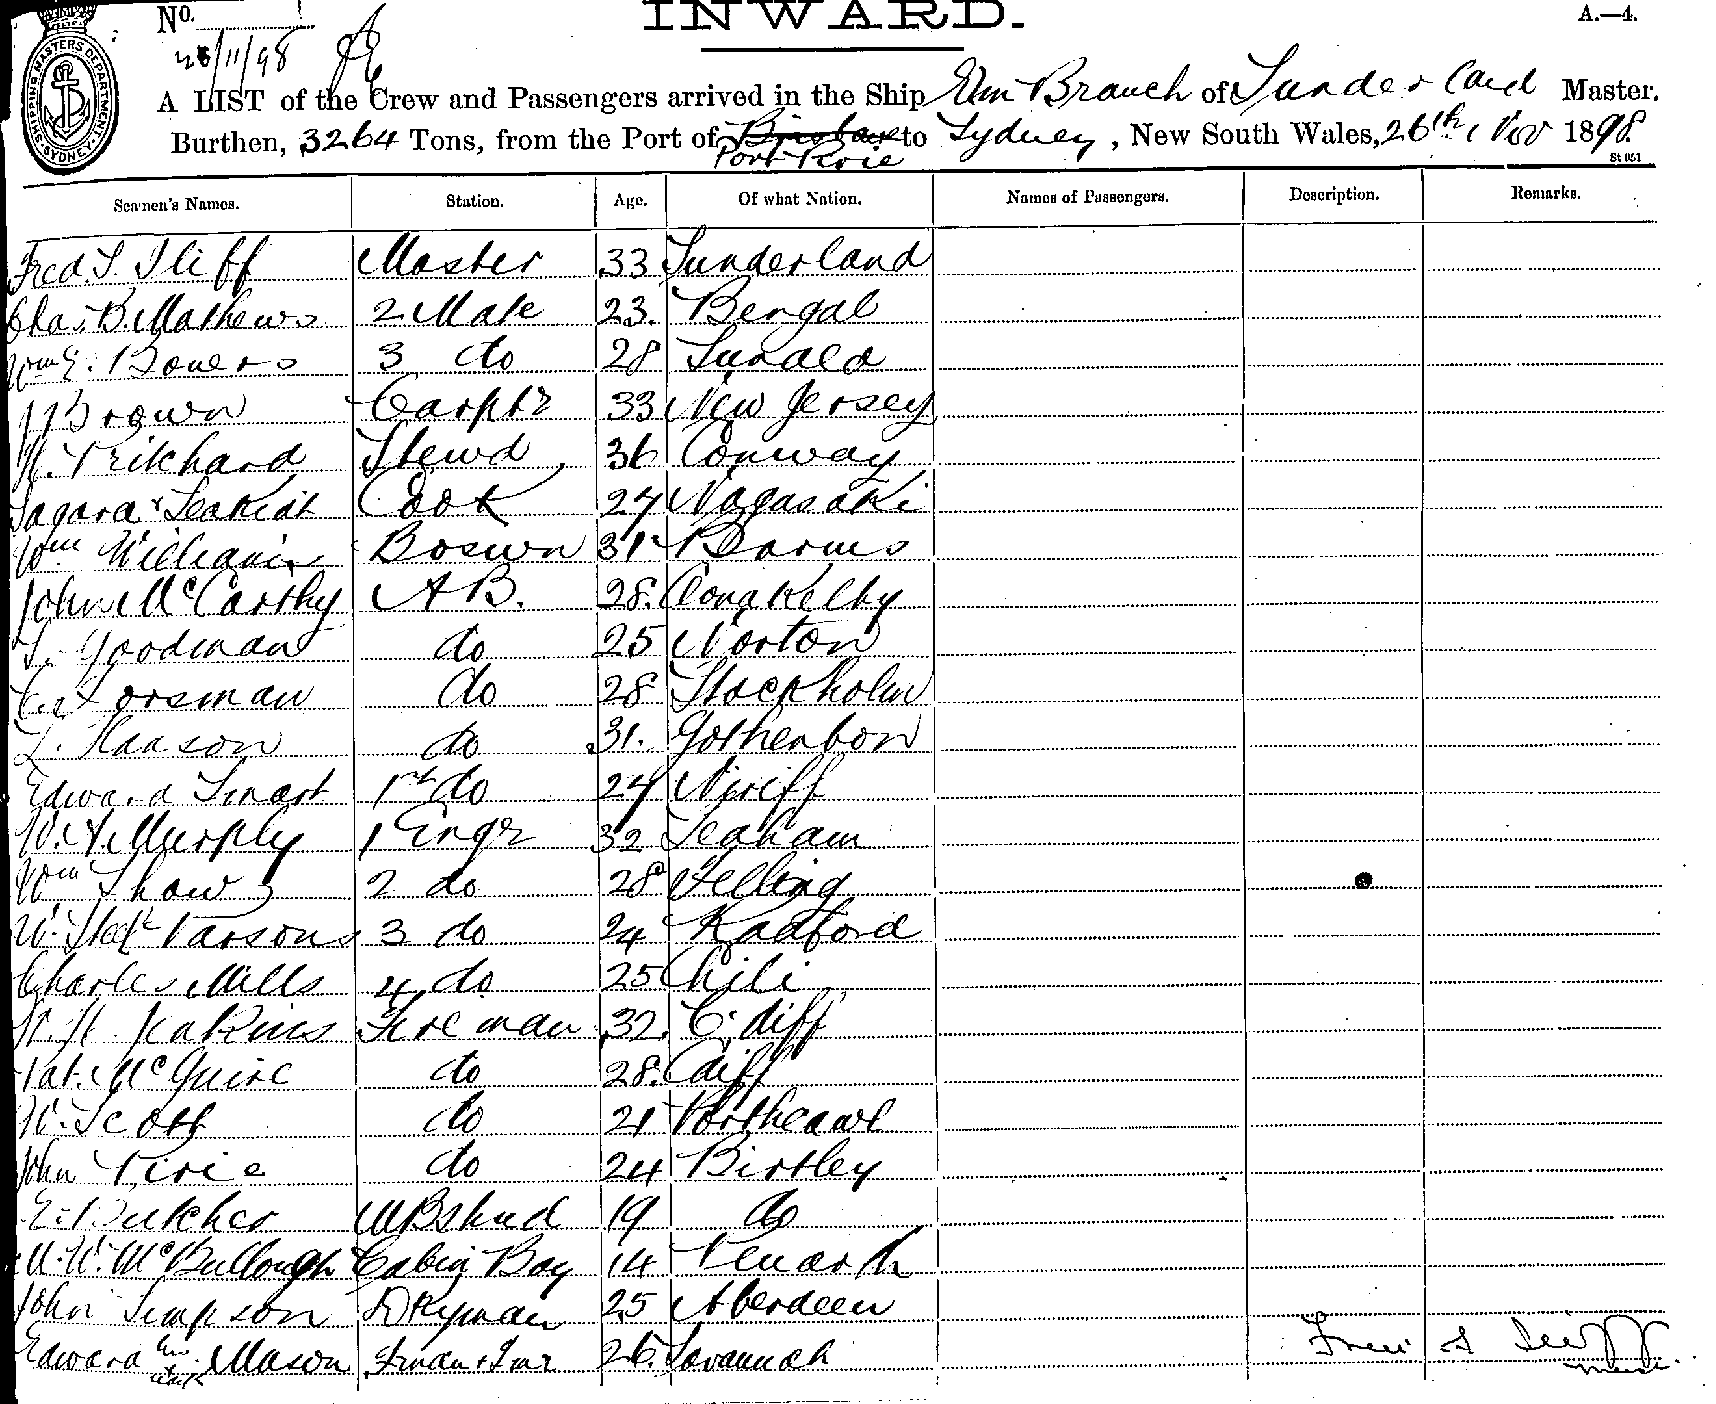 INWARD.
A.—4.
No.
26/11/98
SHIPPING MASTERS DEPARTMENT. SYDNEY
A LIST of the Crew and Passengers arrived in the Ship Elm Branch of Sunderland Master.
Burthen, 3264 Tons, from the Port of Brisbane to Sydney, New South Wales, 26th Nov 1898.
Port Pirie
St 051
Seamen's Names. Station. Age. Of what Nation. Names of Passengers. Description. Remarks.
Fred. S. Iliff Master 33 Sunderland
Chas. B. Mathews 2 Mate 23. Bengal
Wm E. Bowers 3 do 28 Sunald
Brown Carptr 33 New Jersey
Pritchard Stewd, 36 Conway
Sagara Cook 27 Nagasaki
Wm Williams Boswn 31
John McCarthy A B. 28. Clonakelby
Goodman do 25 Norton
Forsman do 28 Stockholm
L. Haason do 31. Gothenbon
Edward Smart do 24
W. A. Murphy 1 Engr 32 Seaham
Wm Shaw 2 do 28 Felling
Parsons 3 do 24 Radford
Charles Mills 4 do 25 Chili
W. H. Jenkins Fireman 32. C. diff
Pat. McGuire do 28. Cdiff
W. Scott do 21 Porthcawl
John Pirie do 24 Birtley
E. Butcher 19 do
W. W. McCullough Cabin Boy 14 Penarth
John Simpson Dkyman 25 Aberdeen
Edward Mason Fman & Tmr 26. Savannah
Fred S Iliff